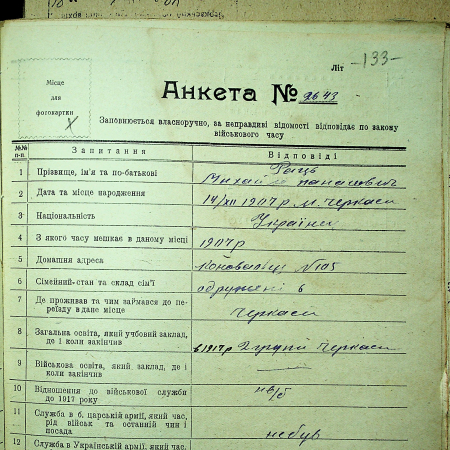 Літ
—133—
Місце
для
фотокартки
Анкета № 2643
Заповнюється власноручно, за неправдиві відомості відповідає по закону
військового часу
№№ п-п. Запитання Відповіді
1 Прізвище, ім'я та по-батькові Раць
Михайло Панасович
2 Дата та місце народження 14/XII 1907 р м. Черкаси
3 Національність Україн
4 З якого часу мешкає в даному місці 1907 р
5 Домашня адреса №105
6 Сімейний-стан та склад сім'ї одружені в
7 Де проживав та чим займався до пе-
реїзду в дане місце Черкаси
8 Загальна освіта, який учбовий заклад,
де і коли закінчив в 1917 р 2 групи Черкаси
9 Військова освіта, який заклад, де і
коли закінчив —
10 Відношення до військової служби
до 1917 року нв/б
11 Служба в б. царській армії, який час,
рід військ та останній чин і
посада не був
12 Служба в Українській армії, який час,